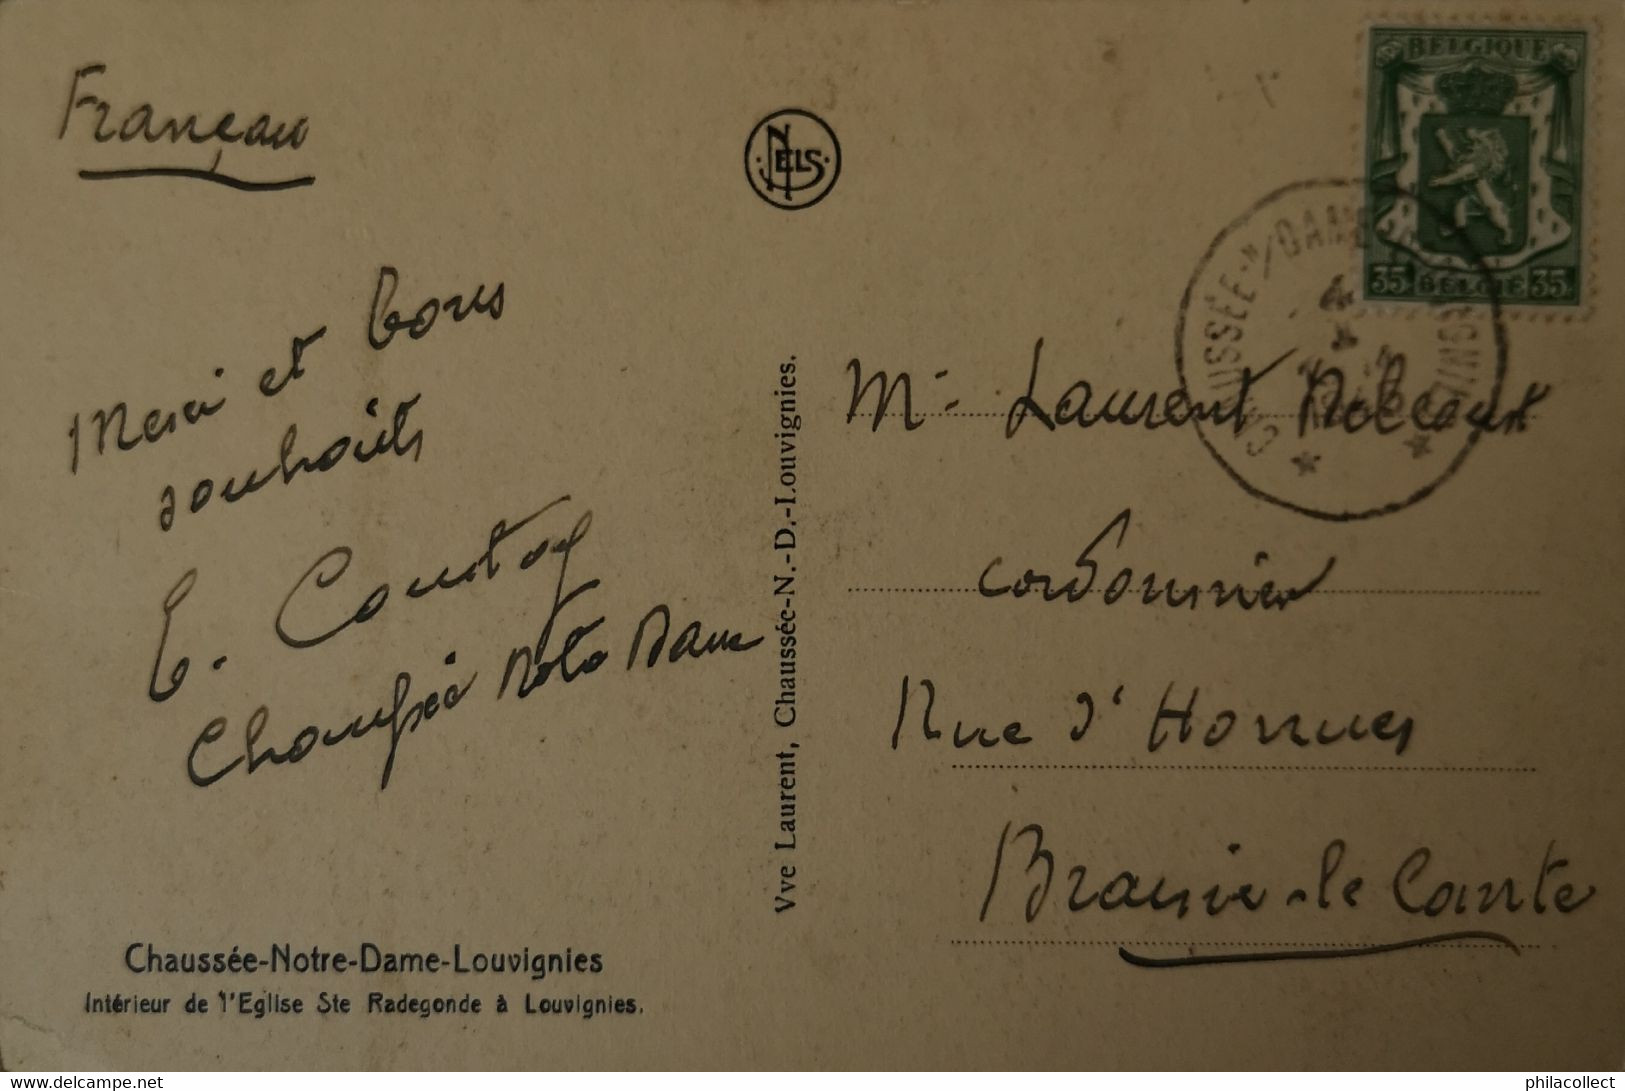 Françau
Merci et bons
souhaits
E. Coustoy
Chaussée Notre Dame
Chaussée-Notre-Dame-Louvignies
Intérieur de l'Eglise Ste Radegonde à Louvignies.
NELS
Vve Laurent, Chaussée-N.-D.-Louvignies.
BELGIQUE
35 BELGIE 35
CHAUSSÉE-N/DAME
Mr Laurent
cordonnier
Rue d'Horrues
Braine-le Comte
www.delcampe.net
philacollect